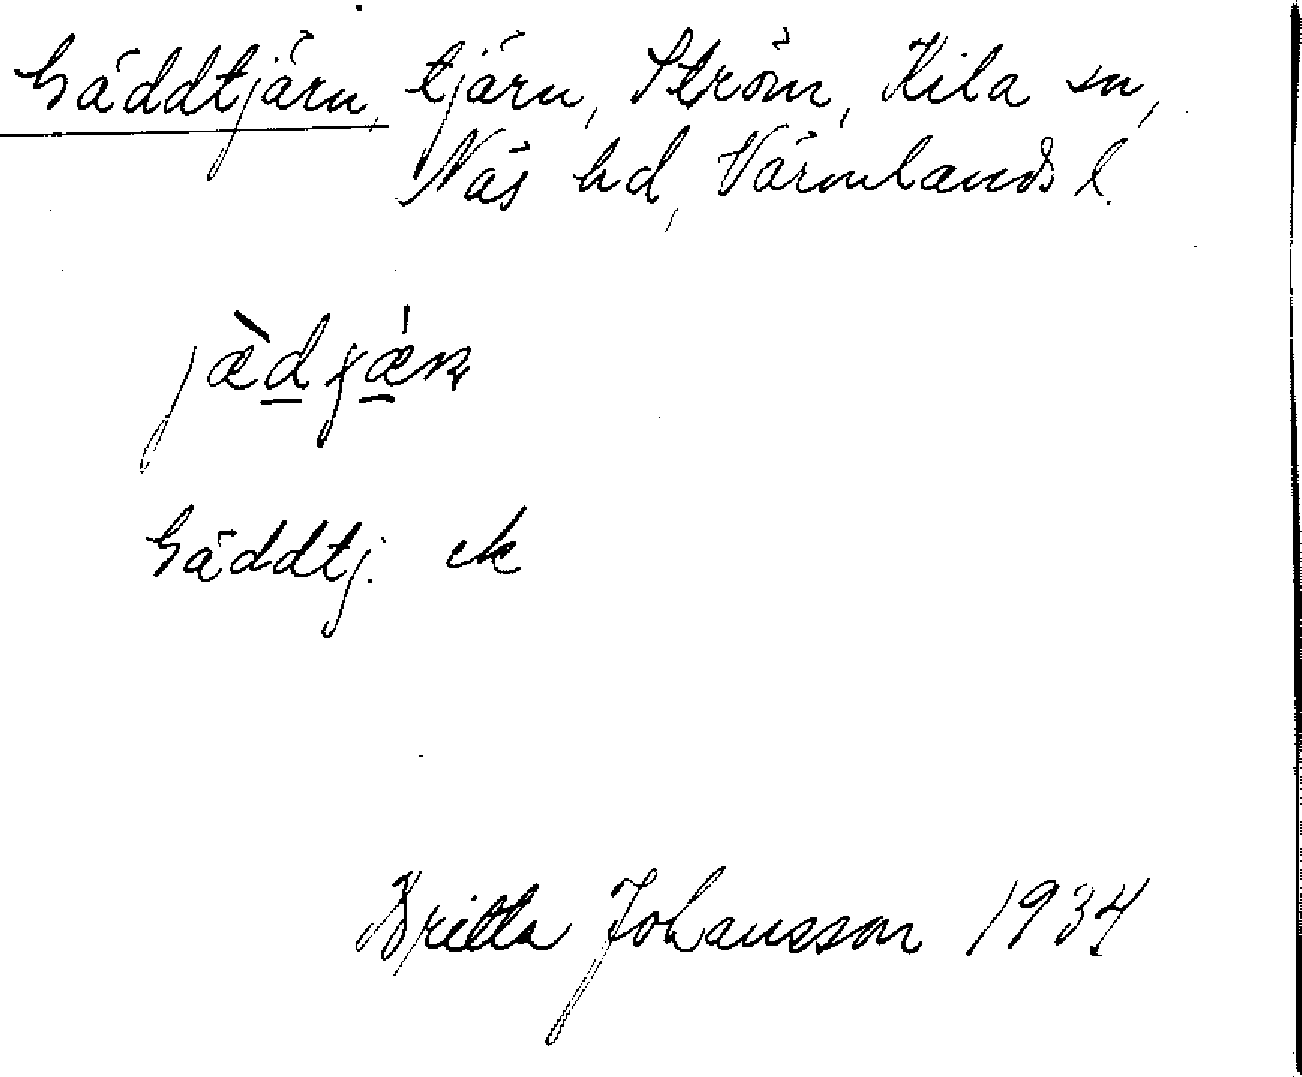 Gäddtjärn, tjärn, Ström, Kila sn,
Näs hd, Värmlands l.
Gäddtj. ek
Britta Johansson 1934